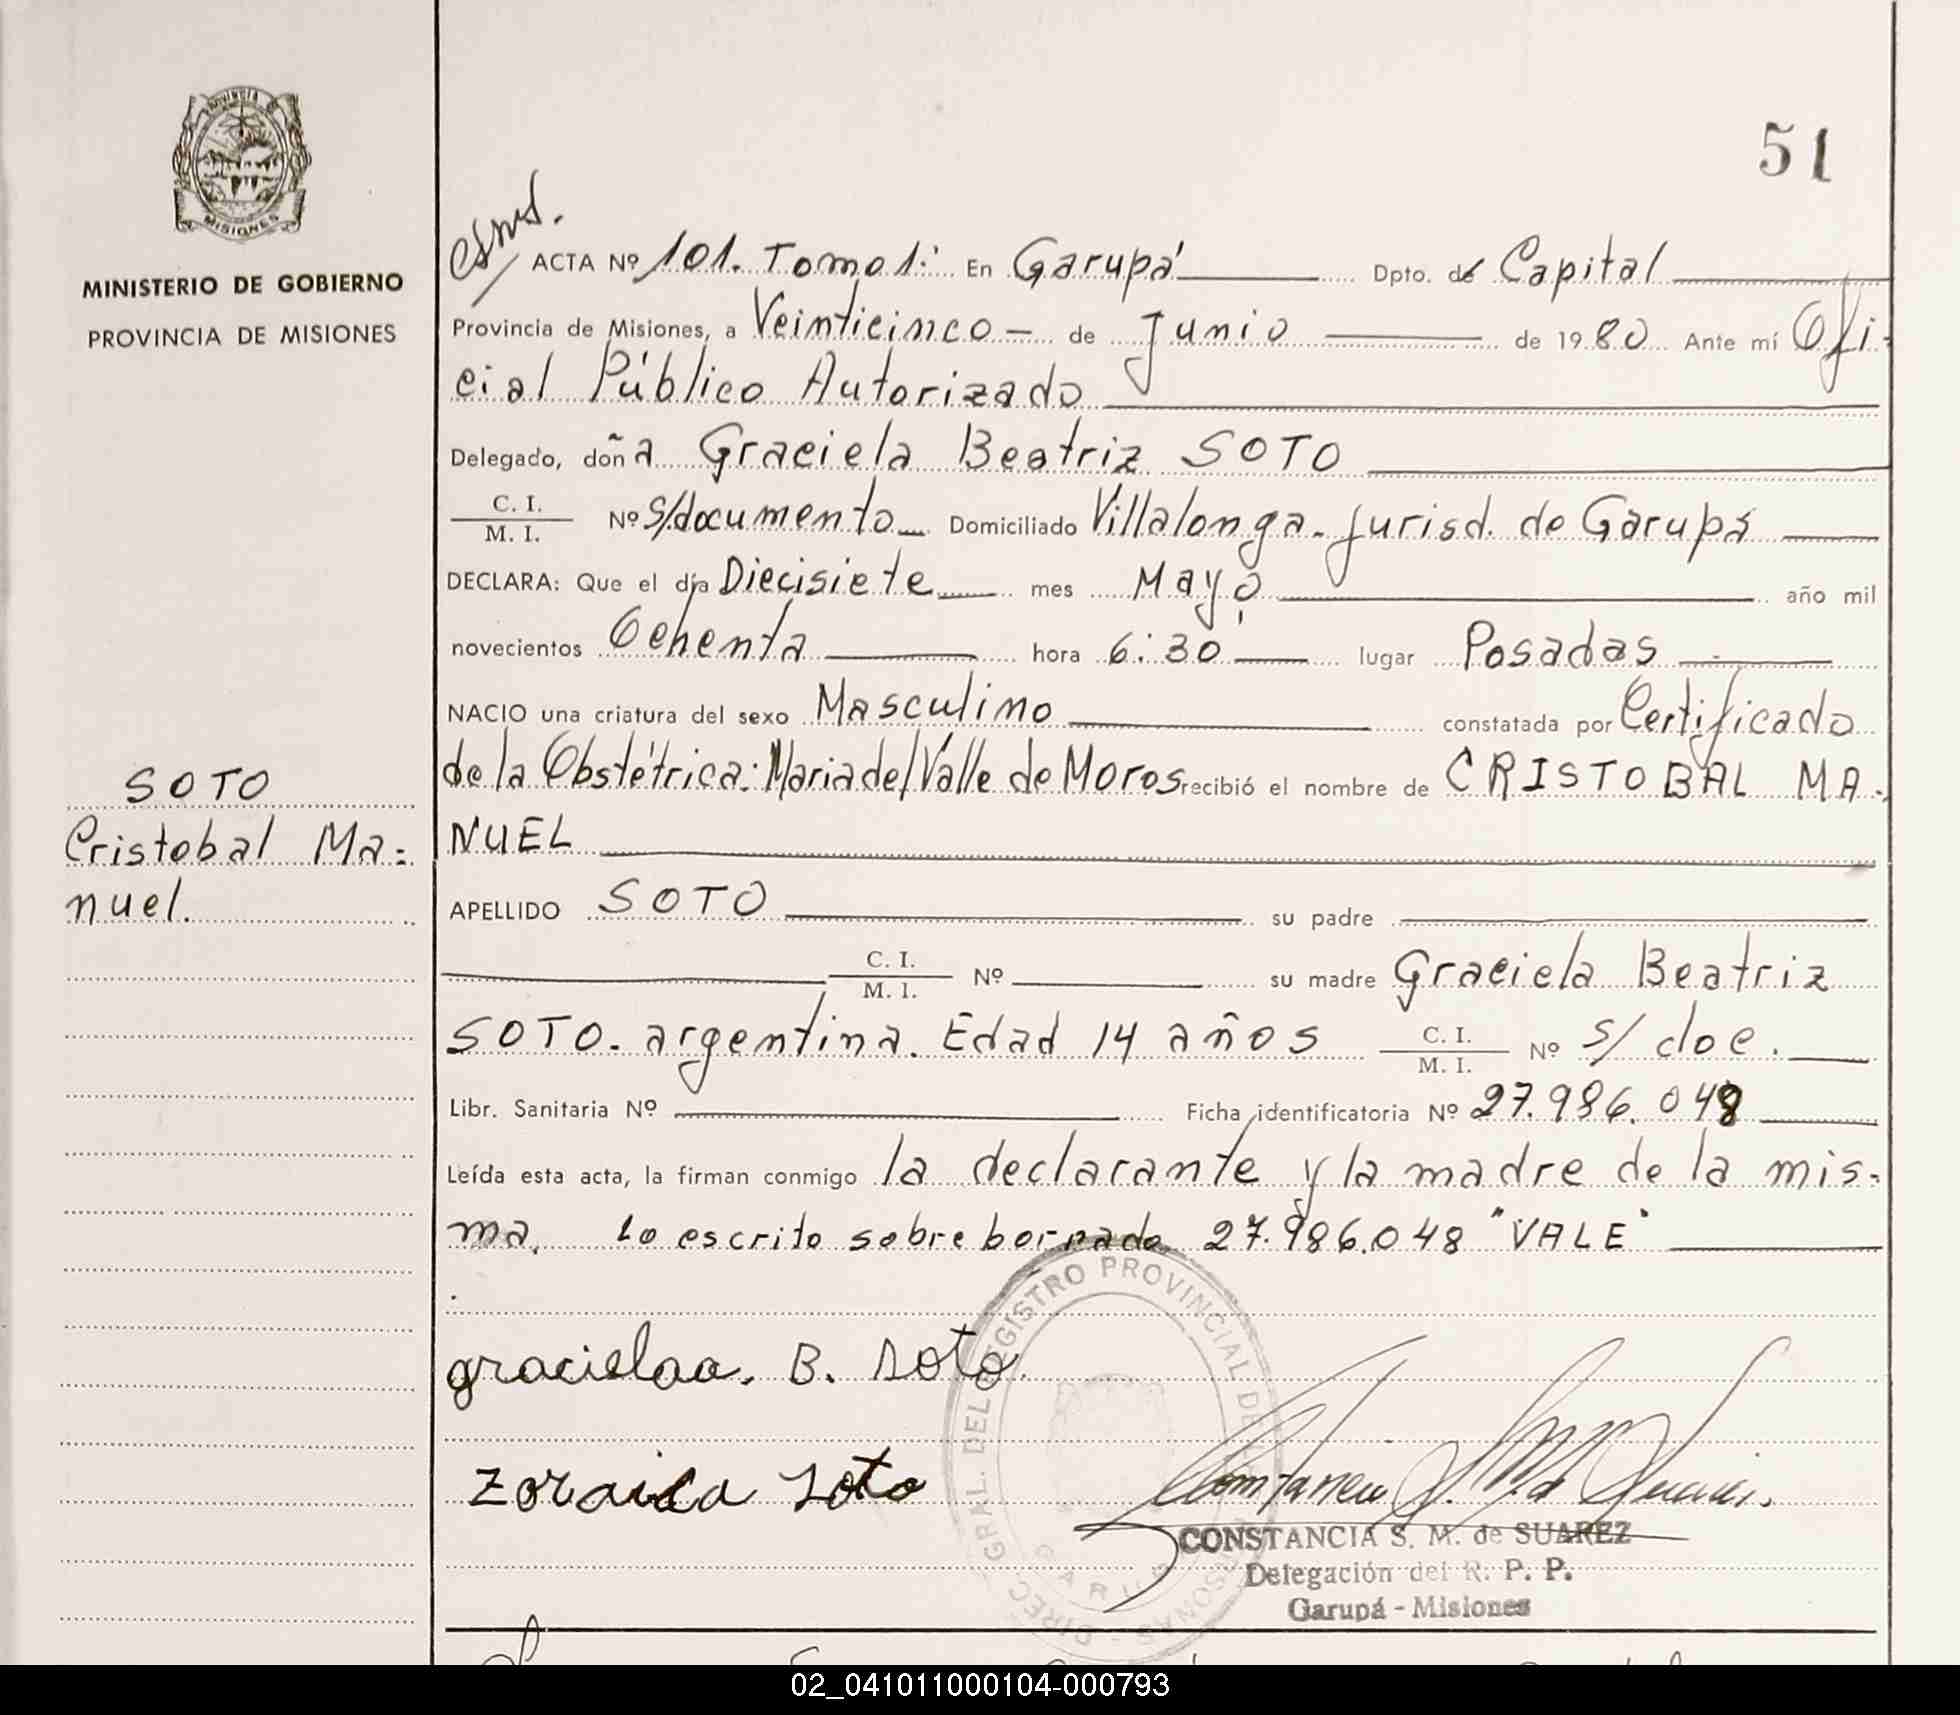 51
PROVINCIA DE
MISIONES
MINISTERIO DE GOBIERNO
PROVINCIA DE MISIONES
ACTA Nº 101. Tomo 1: En Garupá Dpto. de Capital
Provincia de Misiones, a Veinticinco - de Junio de 1980 Ante mí Ofi-
cial Público Autorizado
Delegado, doña Graciela Beatriz SOTO
C. I.
M. I. Nº s/documento Domiciliado Villalonga - jurisd. de Garupá
DECLARA: Que el día Diecisiete mes Mayo año mil
novecientos Ochenta hora 6:30 lugar Posadas
NACIO una criatura del sexo Masculino constatada por Certificado
de la Obstétrica: Maria del Valle de Moros recibió el nombre de CRISTOBAL MA-
NUEL
SOTO
Cristobal Ma=
nuel.
APELLIDO SOTO su padre
C. I.
M. I. Nº su madre Graciela Beatriz
SOTO. argentina. Edad 14 años C. I.
M. I. Nº s/ doc.
Libr. Sanitaria Nº Ficha identificatoria Nº 27.986.048
Leída esta acta, la firman conmigo la declarante y la madre de la mis-
ma. Lo escrito sobre borrado 27.986.048 "VALE"
gracielaa. B. Soto.
Zoraida Soto
DIREC. GRAL. DEL REGISTRO PROVINCIAL DE PERSONAS - GARUPA
CONSTANCIA S. M. de SUAREZ
Delegación del R. P. P.
Garupá - Misiones
02_041011000104-000793